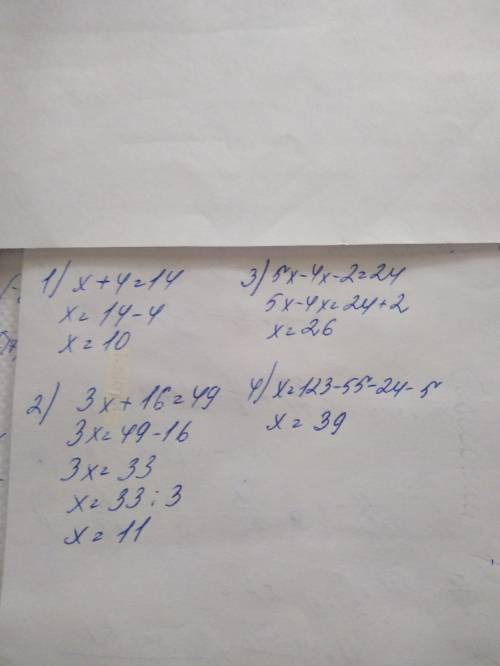 1) x+4=14
x=14-4
x=10
2) 3x+16=49
3x=49-16
3x=33
x=33:3
x=11
3) 5x-4x-2=24
5x-4x=24+2
x=26
4) x=123-55-24-5
x=39